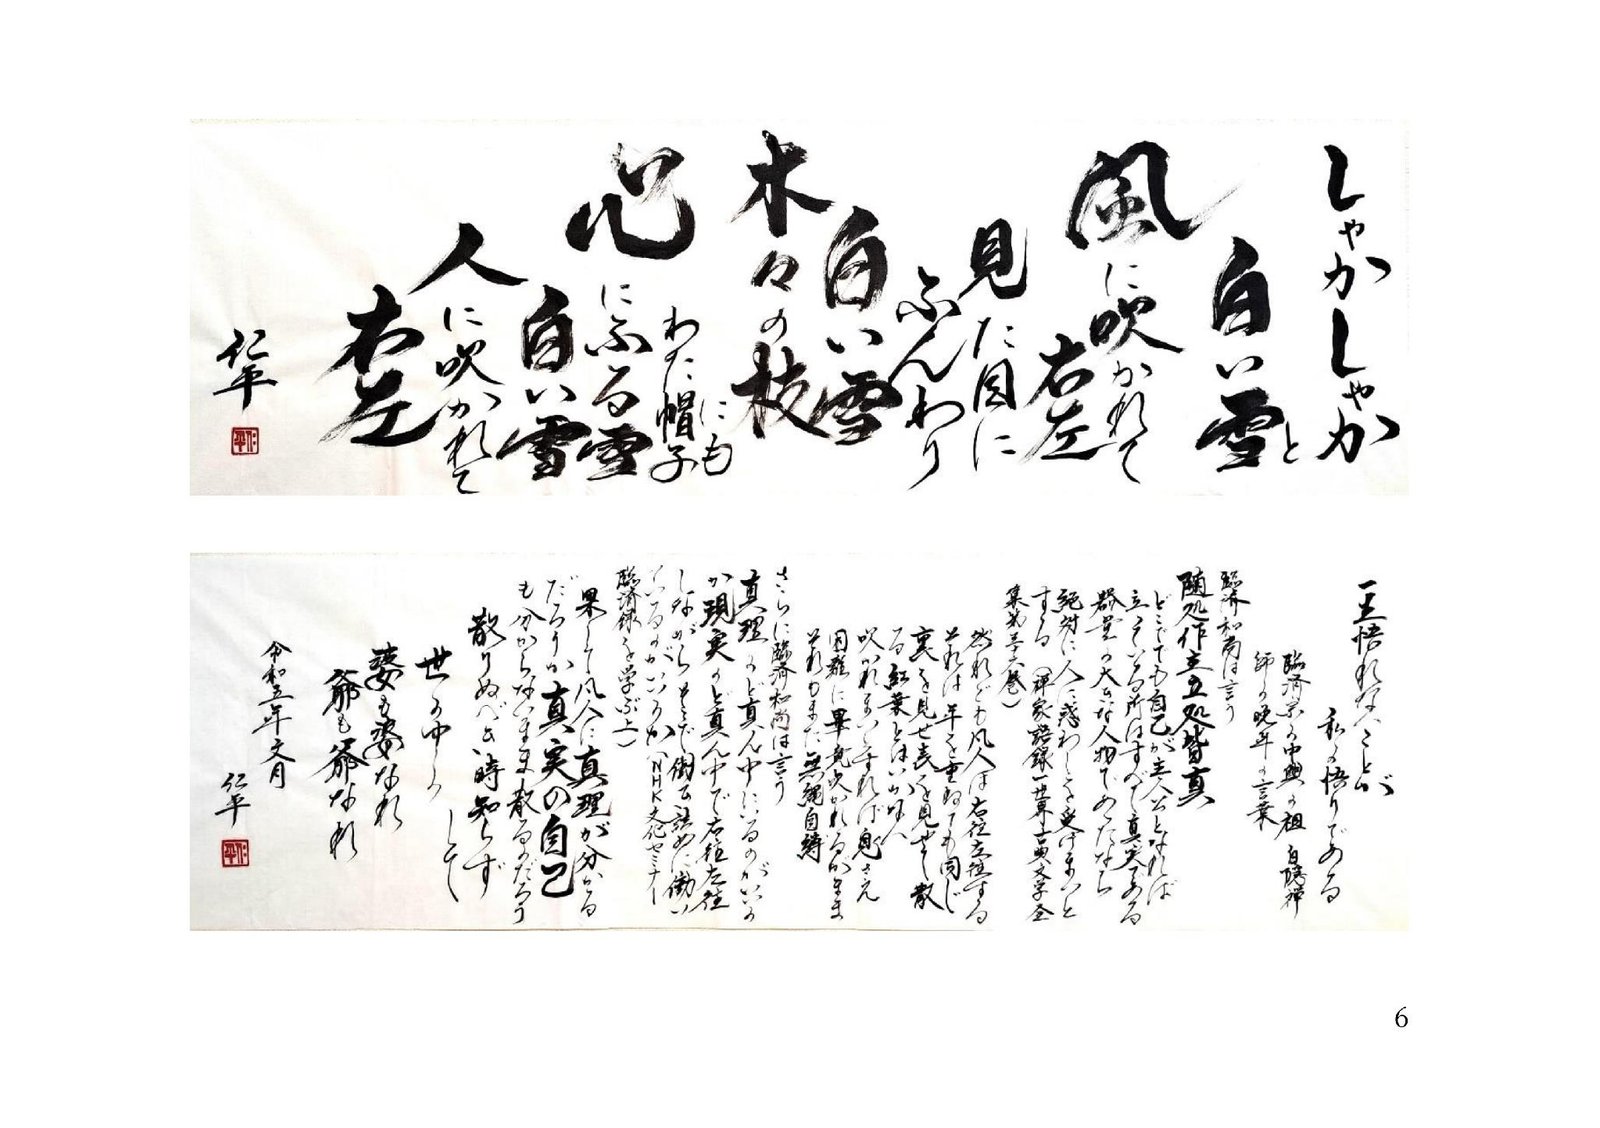 しゃかしゃか
と
白い雪
風に吹かれて
右左
見た目に
ふんわり
白い雪
木々の枝
にも
わた帽子
心にふる雪
白い雪
人に吹かれて
右左
仁平
一生悟れないことが
私の悟りである
臨済宗の中興の祖 白隠禅
師の晩年の言葉
臨済和尚は言う
随処作主立処皆真
どこででも自己が主人公となれば
立っている所はすべて真実である
器量の大きな人物であったなら
絶対に人に惑わしを受けまいと
する(禅家語録一世界古典文学全
集第三十六巻)
然れども凡人は右往左往する
それは年を重ねても同じ
裏を見せ表を見せて散
る紅葉とはいかない
吹かれまいとすれば息さえ
困難に畢竟吹かれるがまま
それもまた無縄自縛
さらに臨済和尚は言う
真理のど真ん中にいるのがいいの
か現実のど真ん中で右往左往
しながらそこで働き詰めに働い
ているのがいいのか(NHK文化セミナー
臨済録を学ぶ上)
果して凡人に真理が分かる
だろうか真実の自己
も分からないまま散るのだろう
散りぬべき時知らず
して
世の中の
婆も婆なれ
爺も爺なれ
令和五年文月
仁平
6